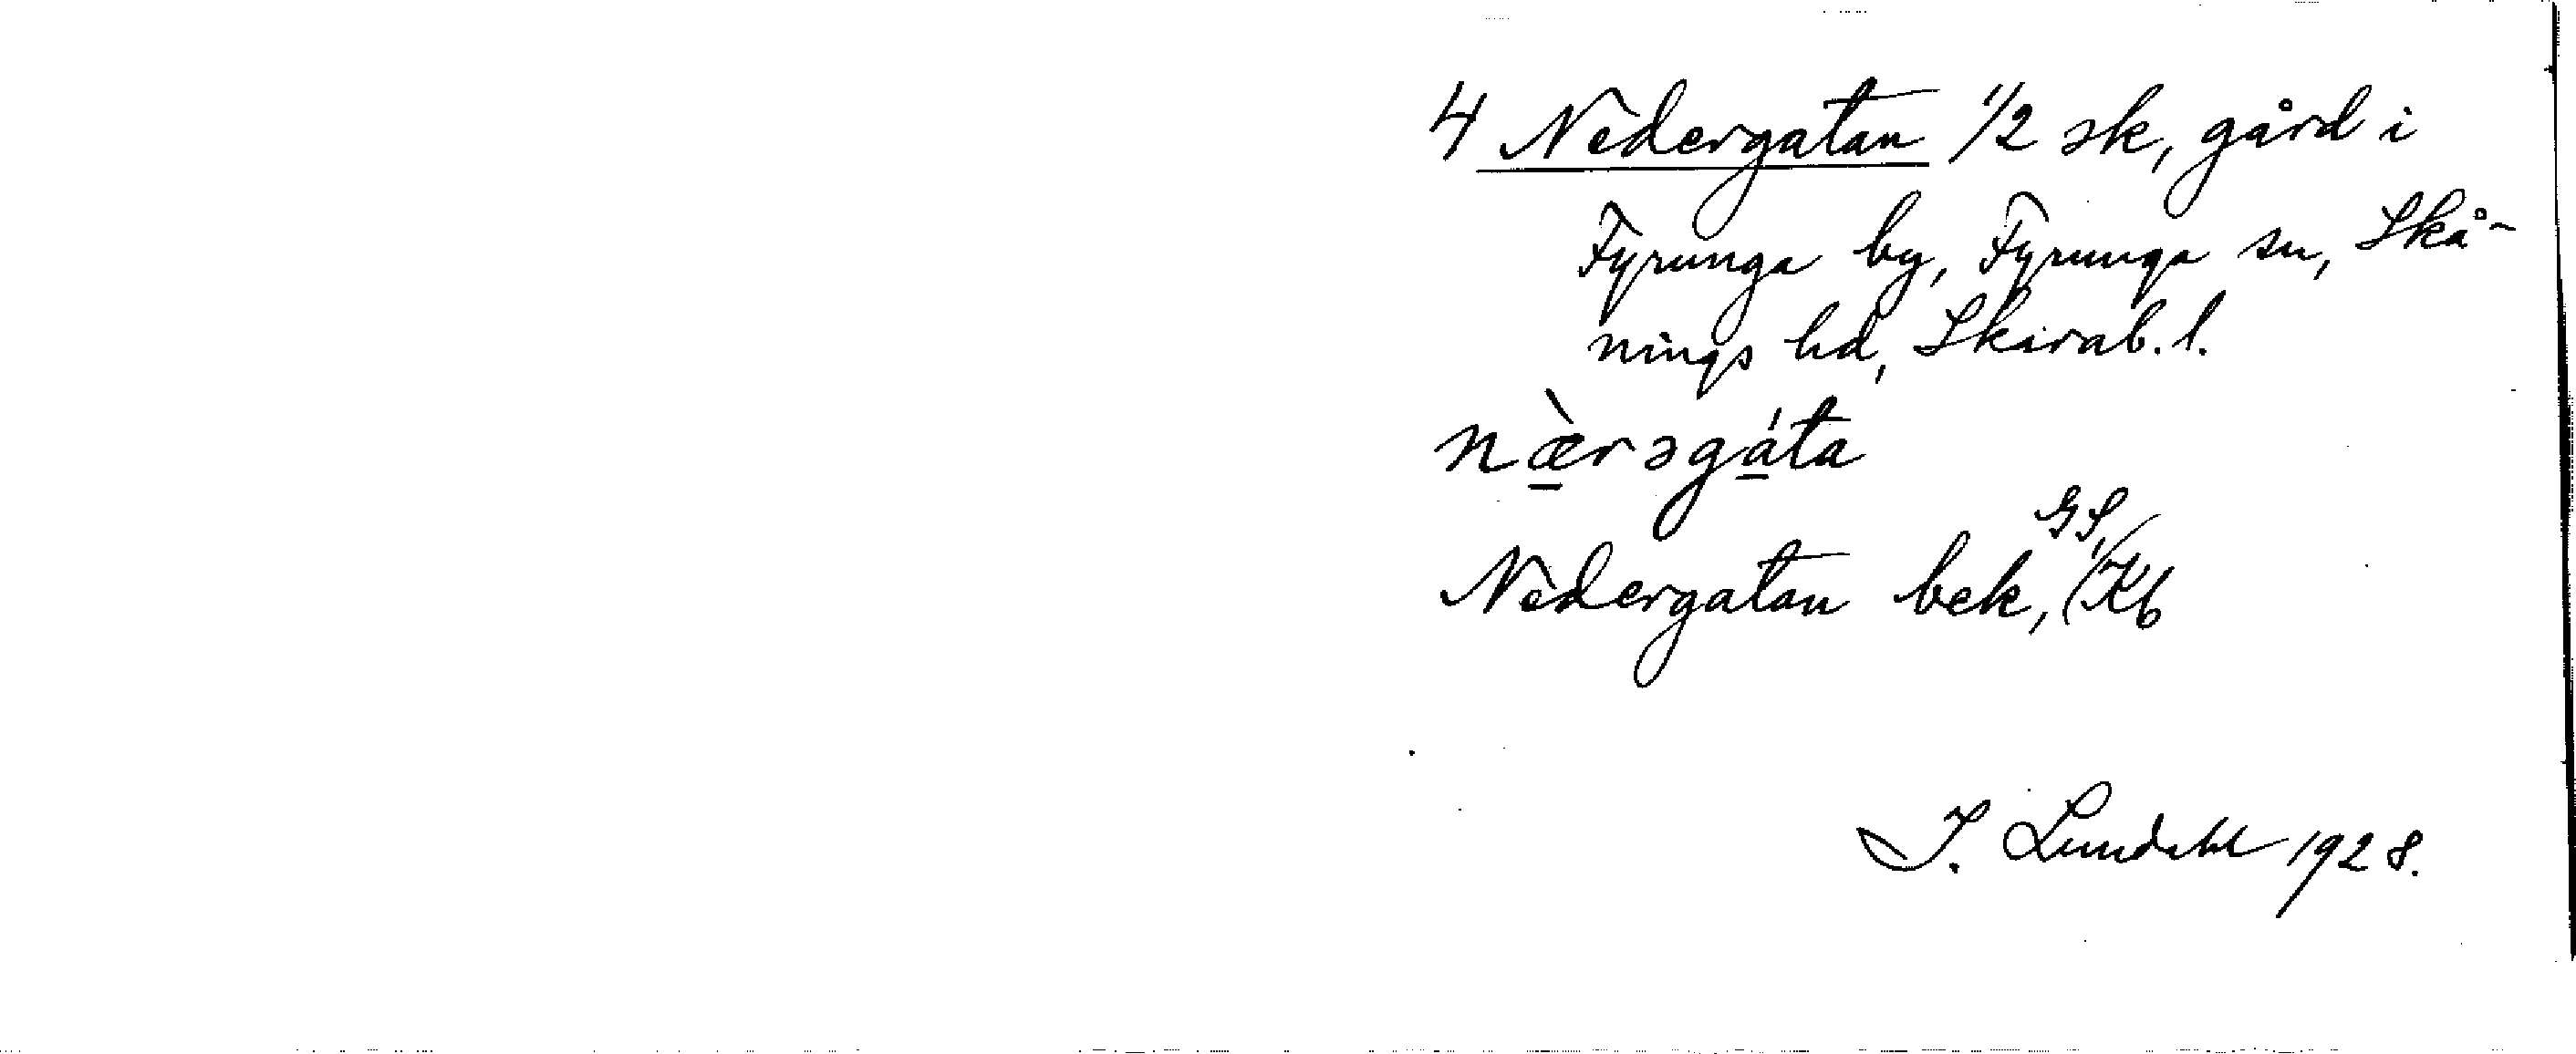 4 Nedergatan 1/2 sk, gård i
Fyrunga by, Fyrunga sn, Skå-
nings hd, Skarab. l.
næ̀rəgáta
Nedergatan bek, GS, Kb
I. Lundahl 1928.